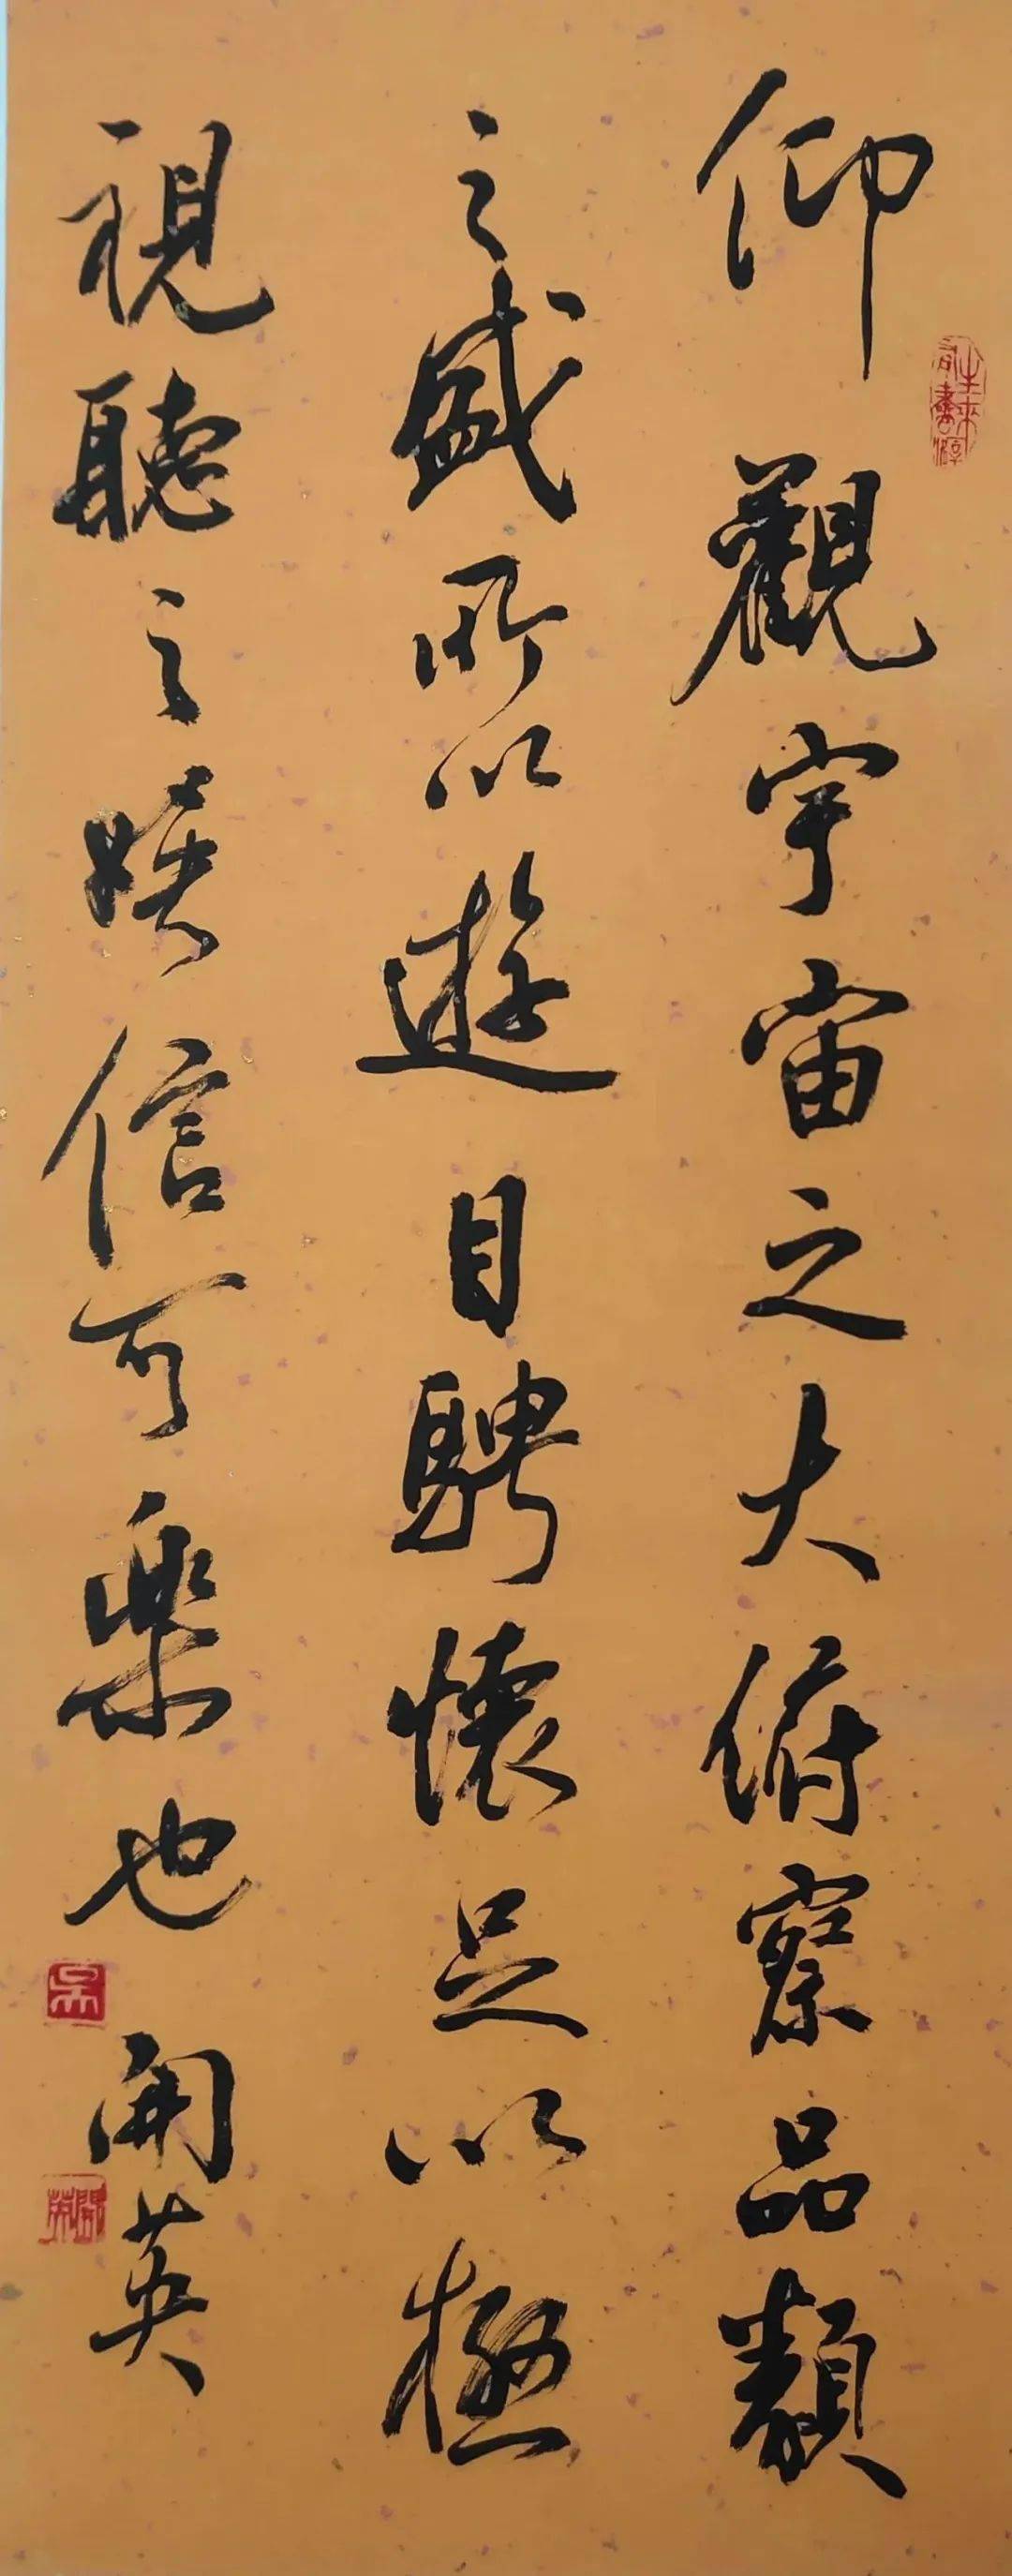 仰觀宇宙之大俯察品類
之盛所以遊目騁懷足以極
視聽之娱信可樂也
開英
吳
開英